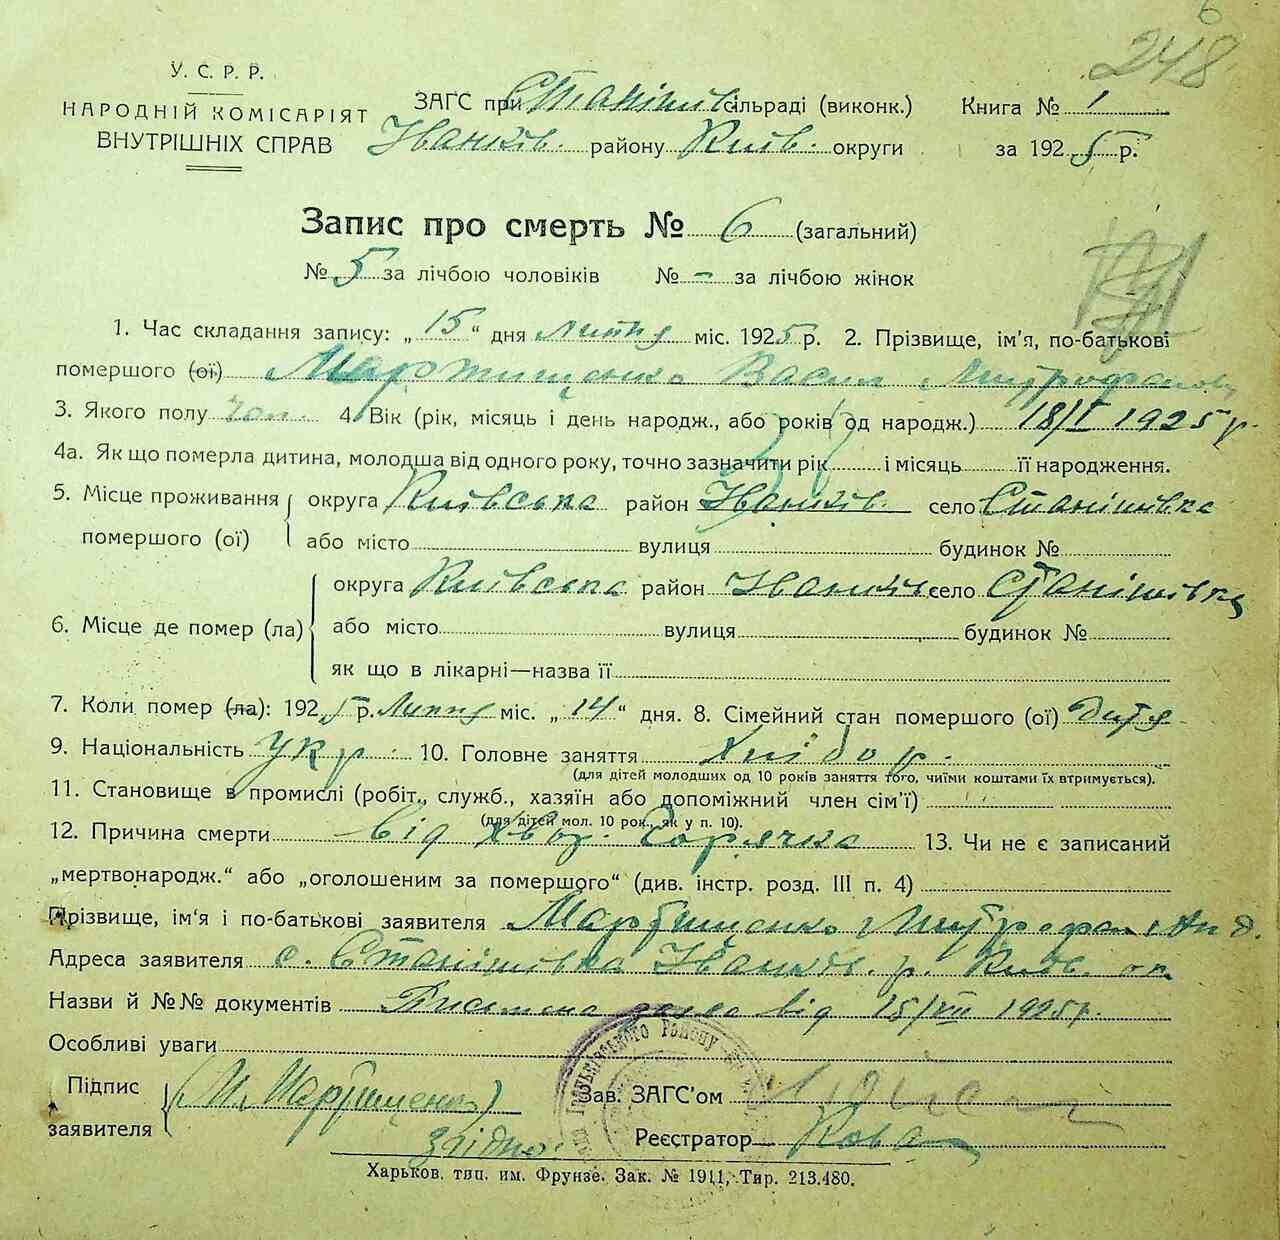 6
248
У. С. Р. Р.
НАРОДНІЙ КОМІСАРІЯТ
ВНУТРІШНІХ СПРАВ
ЗАГС при Станішів сільраді (виконк.)
Іванків. району Київ. округи
Книга № 1
за 1925 р.
Запис про смерть № 6 (загальний)
№ 5 за лічбою чоловіків № - за лічбою жінок
1. Час складання запису: „15“ дня липня міс. 1925 р. 2. Прізвище, ім'я, по-батькові
помершого (ої) Мартищенко Васил Митрофанов
3. Якого полу чол. 4. Вік (рік, місяць і день народж., або років од народж.) 18/I 1925 р.
4а. Як що померла дитина, молодша від одного року, точно зазначити рік і місяць її народження.
5. Місце проживання помершого (ої) округа Київська район Іванків. село Станішівка
або місто вулиця будинок №
6. Місце де помер (ла) округа Київська район Іванків село Станішівка
або місто вулиця будинок №
як що в лікарні—назва її
7. Коли помер (ла): 1925 р. Липня міс. „14“ дня. 8. Сімейний стан помершого (ої) Дитя
9. Національність Укр. 10. Головне заняття Хлібор.
(для дітей молодших од 10 років заняття того, чиїми коштами їх втримується).
11. Становище в промислі (робіт., служб., хазяїн або допоміжний член сім'ї)
(для дітей мол. 10 рок., як у п. 10).
12. Причина смерти від Горячка 13. Чи не є записаний
„мертвонародж.“ або „оголошеним за помершого“ (див. інстр. розд. III п. 4)
Прізвище, ім'я і по-батькові заявителя Мартищенко Митрофан
Адреса заявителя с. Станішівка Іванків. р. Київ. ок.
Назви й №№ документів від 15/VII 1925 р.
Особливі уваги
Підпис заявителя (М. Мартищенко)
згідно:
Зав. ЗАГС'ом
Реєстратор Кова
Району
Харьков. тип. им. Фрунзе. Зак. № 1911, Тир. 213.480.